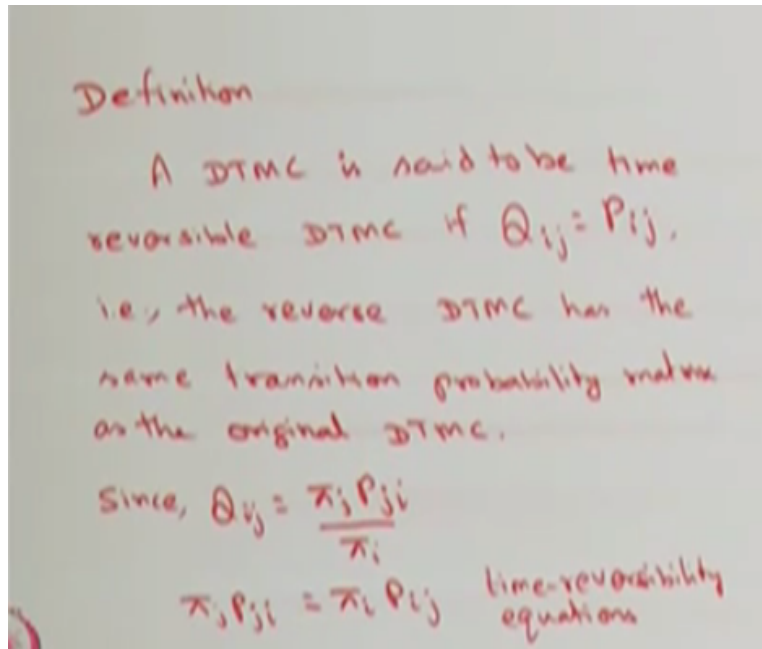 Definition
A DTMC is said to be time
reversible DTMC if Qij = Pij.
i.e., the reverse DTMC has the
same transition probability matrix
as the original DTMC.
Since, Qij = πj Pji / πi
πj Pji = πi Pij time-reversibility
equations